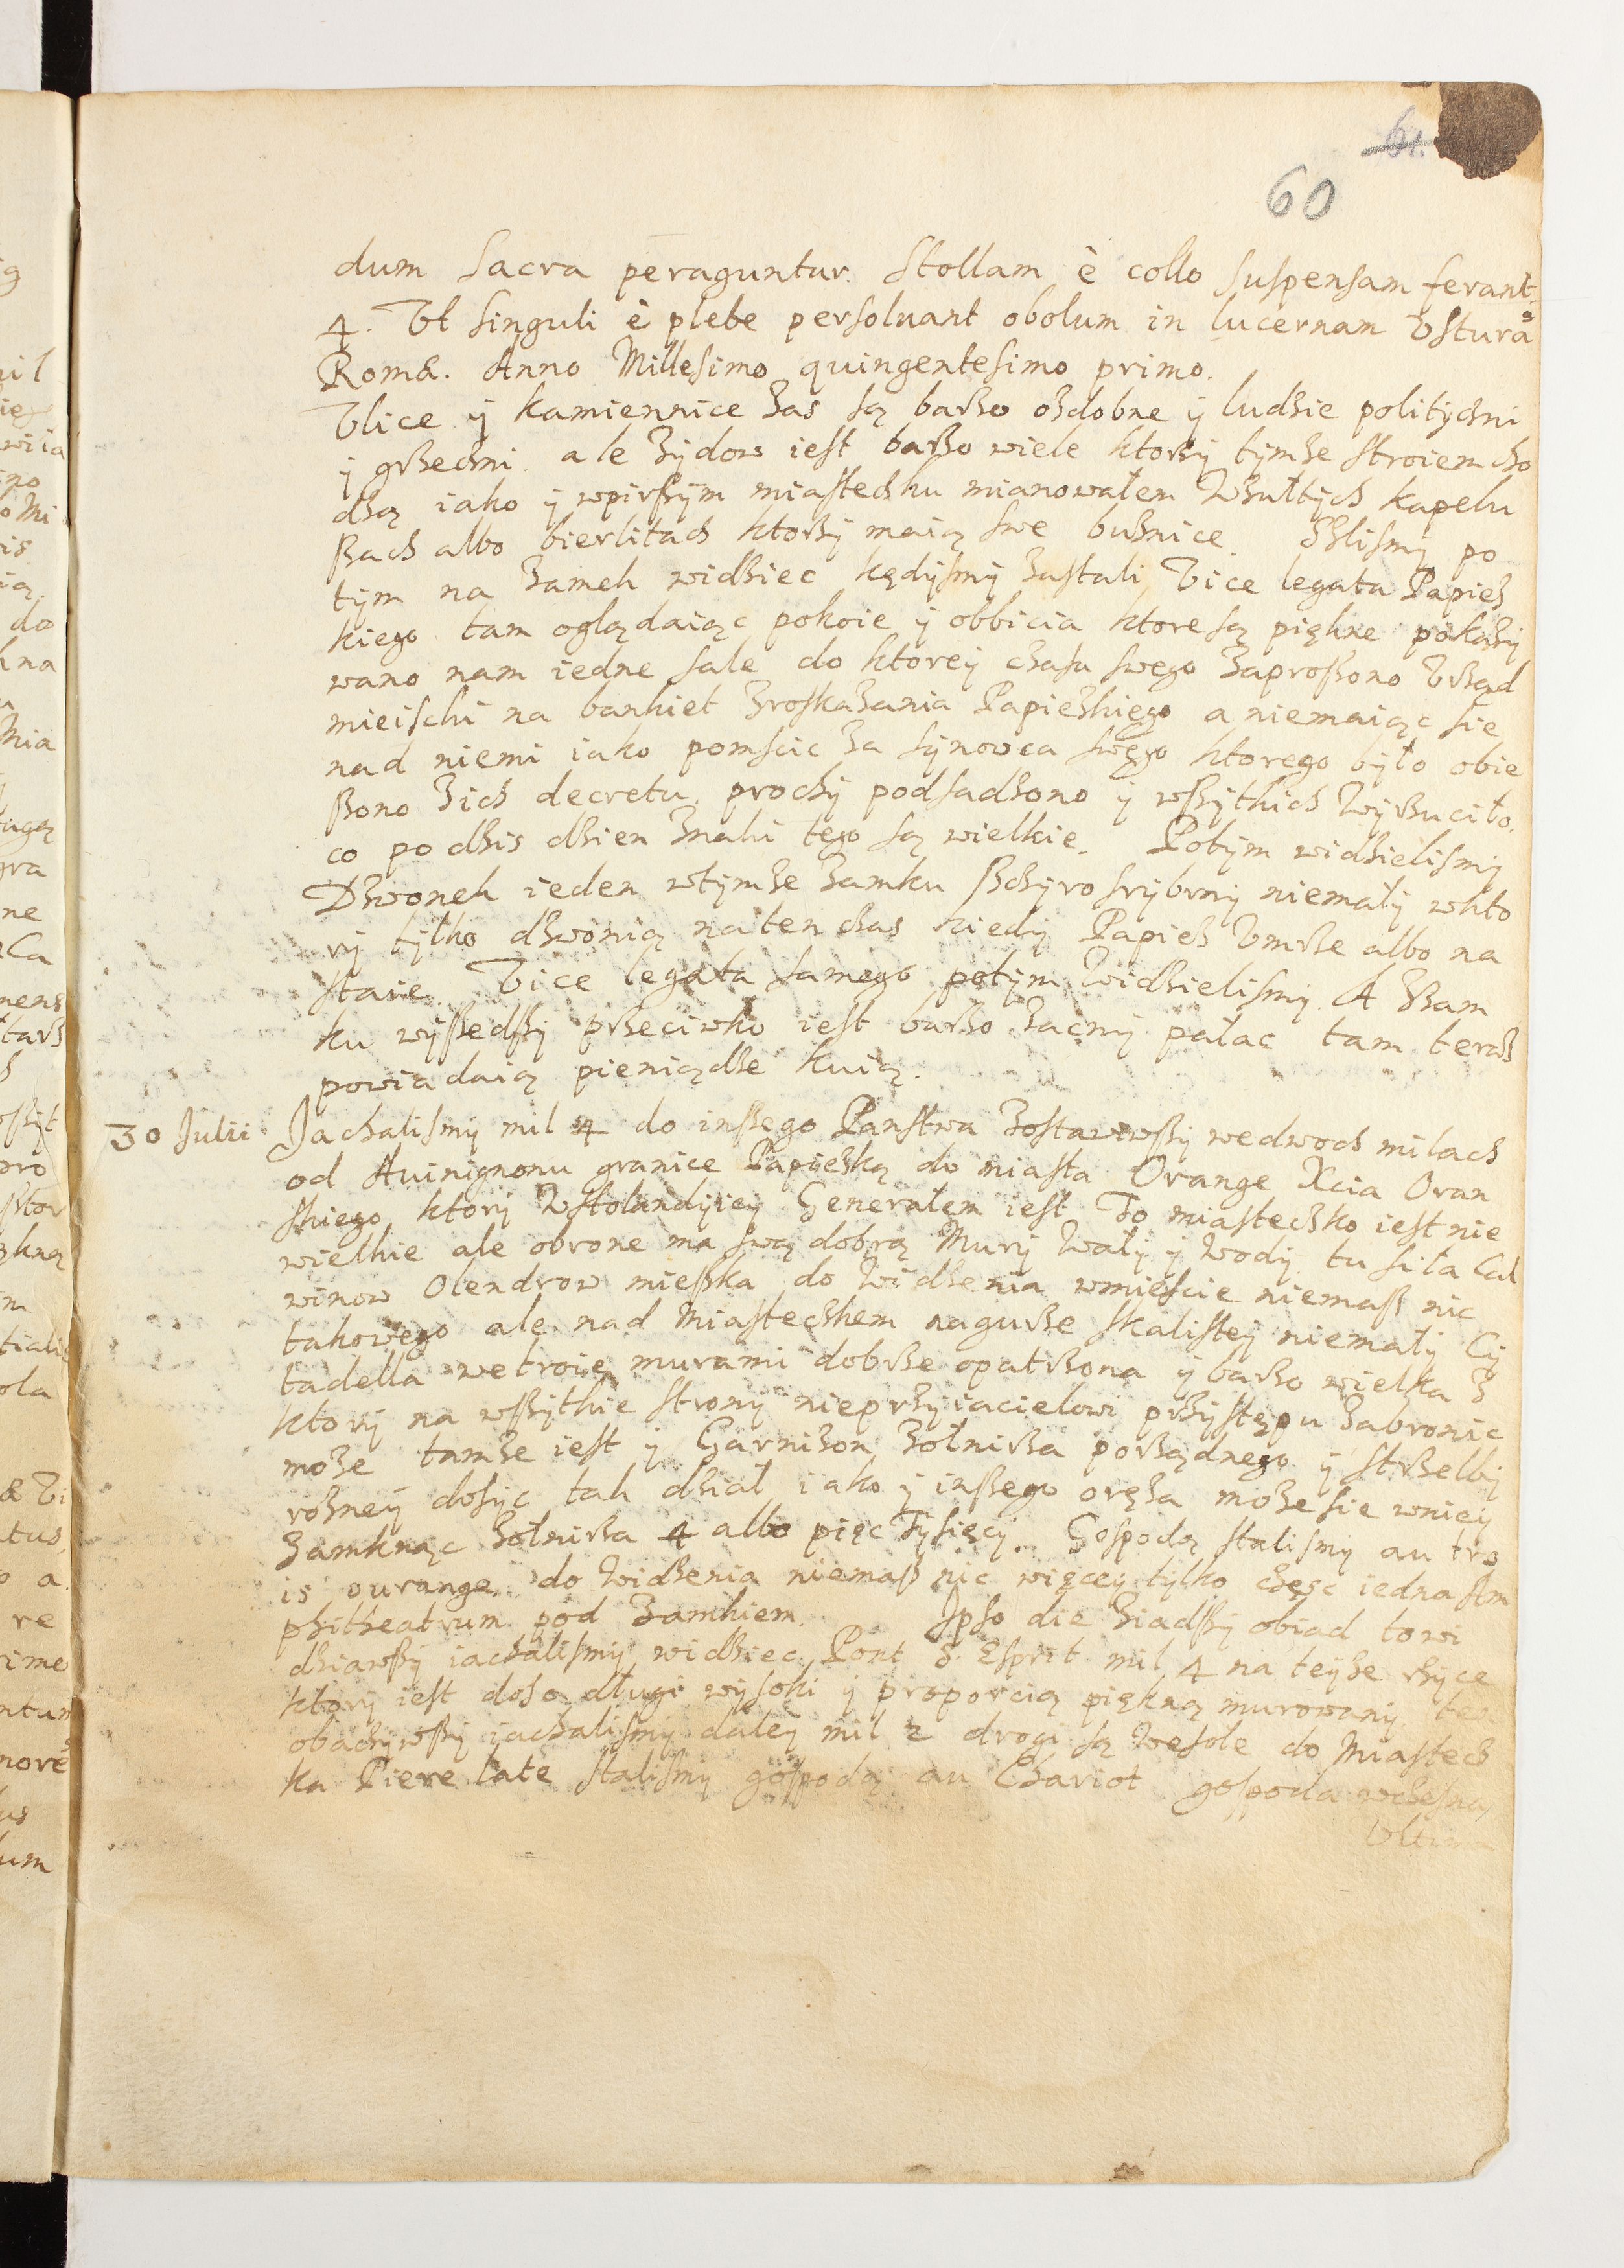 61.
60
dum sacra peraguntur. Stollam è collo suspensam ferant.
4. Vt singuli è plebe persoluant obolum in lucernam Vsturã
Romæ. Anno Millesimo quingentesimo primo.
Vlice ÿ kamiennice zas są barzo ozdobne ÿ ludzie politÿchni
ÿ grzechni. ale Zÿdow iest barzo wiele ktorzÿ tÿmze stroiem cho
dzą iako ÿ wpirszÿm miastechku mianowałem Wzułtÿch kapelu
szach albo bierlitach ktorzÿ maią swe buznice. Szlismÿ po
tÿm na Zamek widziec kędÿsmÿ zastali Vice legata Papiez
kiego tam oglądaiąc pokoie ÿ obbicia ktore są piękne pokazÿ
wano nam iedne sale do ktoreÿ chasu swego zaproszono Vrząd
mieiski na bankiet zroskazania Papiezkiego a niemaiąc sie
nad niemi iako pomscic za sÿnowca swego ktorego bÿło obie
szono zich decretu, prochÿ podsadzono ÿ wszÿtkich wÿrzuciło.
co po dzis dzien znaki tego są wielkie. Potÿm widzielismÿ
Dzwonek ieden wtÿmze Zamku szchÿro srÿbrnÿ niemałÿ wkto
rÿ tÿlko dzwonią naten chas kiedÿ Papiez Vmrze albo na
staie. Vice legata samego potÿm widzielismÿ. A Zzam
ku wÿszedszÿ przeciwko iest barzo zacnÿ pałac tam teraz
powiadaią pieniądze kuią.
30 Julii. Jachalismÿ mil 4 do inszego Panstwa zostawiwszÿ wedwoch milach
od Auinignonu granice Papiezką do miasta Orange Xcia Oran
skiego ktorÿ WHolandÿieÿ Generałem iest. To miastechko iest nie
wielkie ale obrone ma swą dobrą Murÿ Wałÿ ÿ wodÿ. tu siła Cal
winow Olendrow mieszka do widzenia wmiescie niemasz nic
takowego ale nad Miastechkem nagurze skalisteÿ niemałÿ Cÿ
tadella wetroię murami dobrze opatrzona ÿ barzo wielka z
ktorÿ na wszÿtkie stronÿ nieprzÿiacielowi przÿstępu zabronic
moze tamze iest ÿ Garnizon Zołnirza porządnego ÿ strzelbÿ
rozneÿ dosÿc tak dział iako ÿ inszego oręza moze sie wnieÿ
zamknąc Zołnirza 4 albo pięc Tÿsięcÿ. Gospodą stalismÿ au tro
is ourange. do widzenia niemasz nic więceÿ tÿlko chęsc iedna Am
phitheatrum pod Zamkiem. Ipso die ziadszÿ obiad to wi
dziawszÿ iachalismÿ widziec Pont S. Esprit mil 4 na teÿze rzÿce
ktorÿ iest doso długi wÿsoki ÿ proporcią piękną murowanÿ ten
obachÿwszÿ iachalismÿ daleÿ mil 2 drogi są Wesołe do Miastech
ka Piere late stalismÿ gospodą au Chariot gospoda wchesna.
Vltima